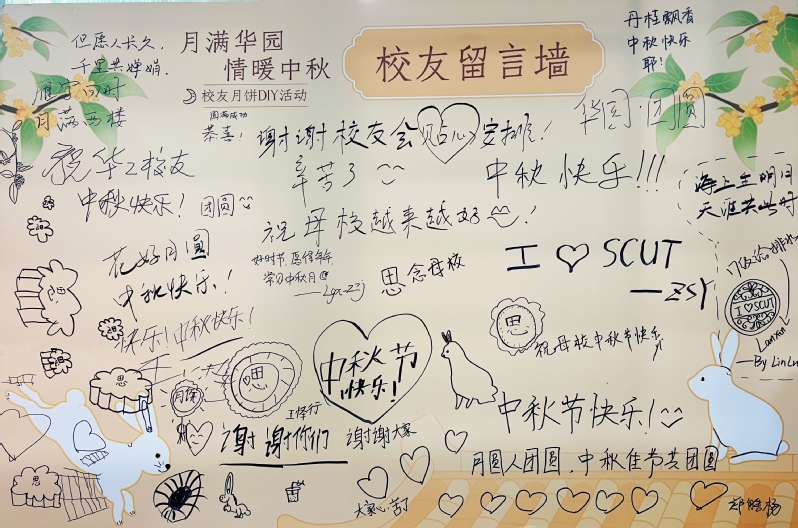 但愿人长久，
千里共婵娟.
月满华园
情暖中秋
校友月饼DIY活动
圆满成功
恭喜！
校友留言墙
丹桂飘香
中秋快乐
耶！
雁字回时
月满西楼
谢谢校友会贴心安排！
辛苦了
华园·团圆
祝华工校友
中秋快乐！团圆
中秋快乐!!!
海上生明月
天涯共此时
祝母校越来越好！
花好月圆
中秋快乐！
学习中秋月
思念母校
I ♡ SCUT
—ZSY
I♡SCUT
Lanxin
—By LinLu
快乐！中秋快乐！
思
思
祝母校中秋节快乐
中秋节
快乐！
思
嗯
月饼
谢谢你们
谢谢大家
中秋节快乐！
月圆人团圆，中秋佳节共团圆
思
大家辛苦了